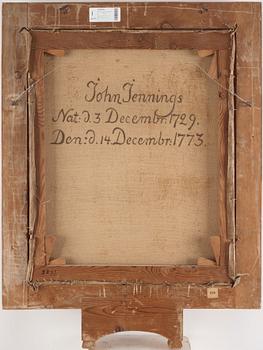 John Jennings
Nat: d. 3 Decembr. 1729.
Den: d. 14. Decembr: 1773.